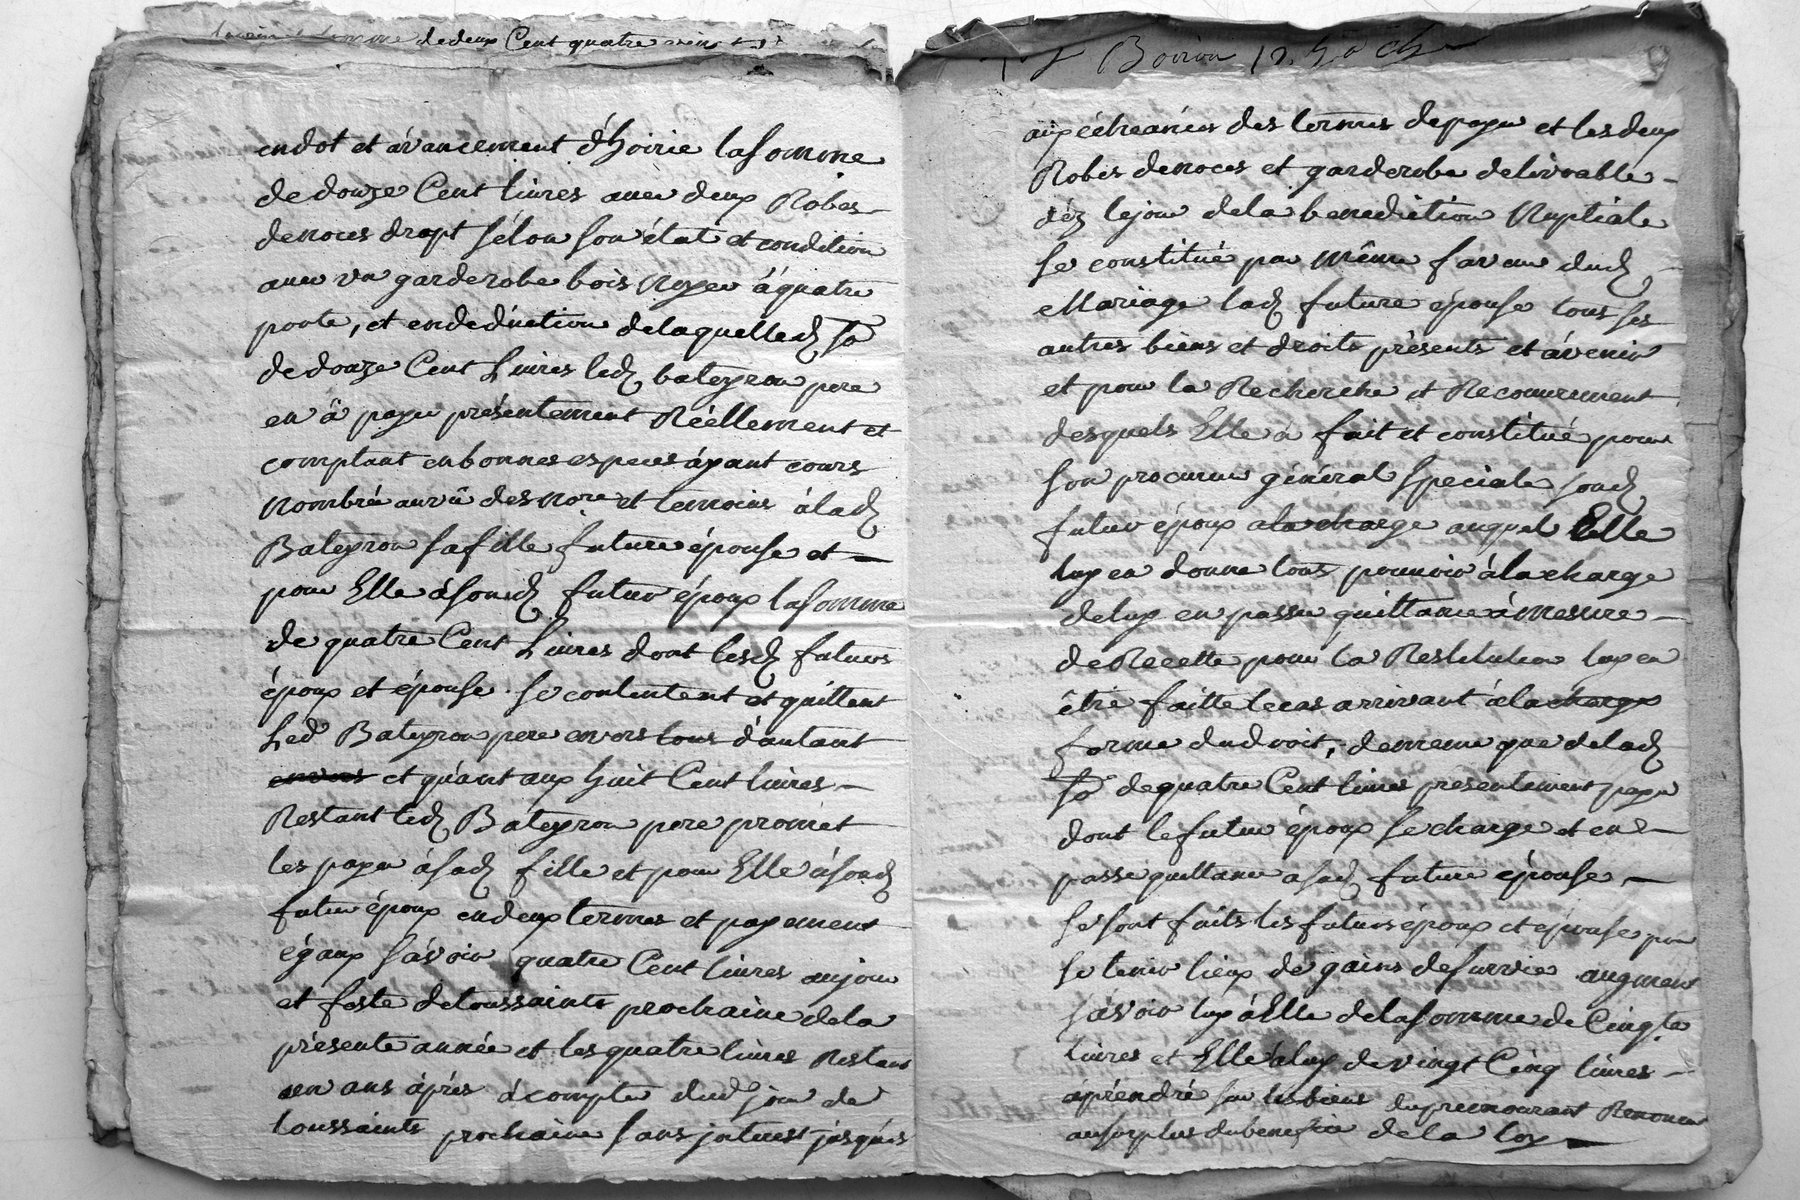 somme de deux Cent quatre
Boiron
en dot et avancement d'hoirie la somme
de douze Cent livres avec deux Robes
de noces drapt sélon son état et condition
avec un garderobe bois Noyer à quatre
porte, et en deduction de laquelle d. so
de douze Cent Livres led. bateyron pere
en à payer présentement Réellement et
comptant en bonnes especes ayant cours
Nombrée au vû des nore et temoins à lad.
Bateyron sa fille future épouse et
pour Elle à soud. futur époux la somme
de quatre Cent Livres dont lesd. futurs
époux et épouse se contentent et quittent
Led Bateyron pere envors tous d'autant
envers et quant aux huit Cent livres
Restant led. Bateyron pere promet
les payer à sad. fille et pour Elle à soud.
futur époux en deux termes et payement
égaux sávoir quatre Cent livres au jour
et feste de toussaints prochaine de la
présente année et les quatre livres Restant
un ans áprés á compter dud jour de
toussaints prochaine sans jnterest jusqués
aux écheances des termes de payer et les deux
Robes de noces et garderobe delivrable
déz le jour de la benediction Nuptiale
Se constitué par même faveur dud.
Mariage lad. future épouse tous ses
autres biens et droits présents et ávenir
et pour la Recherche et Recouvrement
desquels Elle a fait et constitué pour
son procureur général speciale soud.
futur époux a la charge auquel Elle
luy en donne tous pouvoir á la charge
de luy en passer quittance á Mesure
de Recette pour la Restitution luy en
être faitte le cas arrivant á la charge
forme du droit, de meme que de lad.
so de quatre Cent livres presentement payé
dont le futur époux se charge et en
passe quittance a sad. future épouse
Se sont faits les futurs époux et épouse pour
se tenir lieux de gains de survie augment
sávoir luy á Elle de la somme de Cinqte
livres et Elle á luy de vingt Cinq livres
á préndre sur les biens du premourant Renoncent
au surplus du benefice de la loy